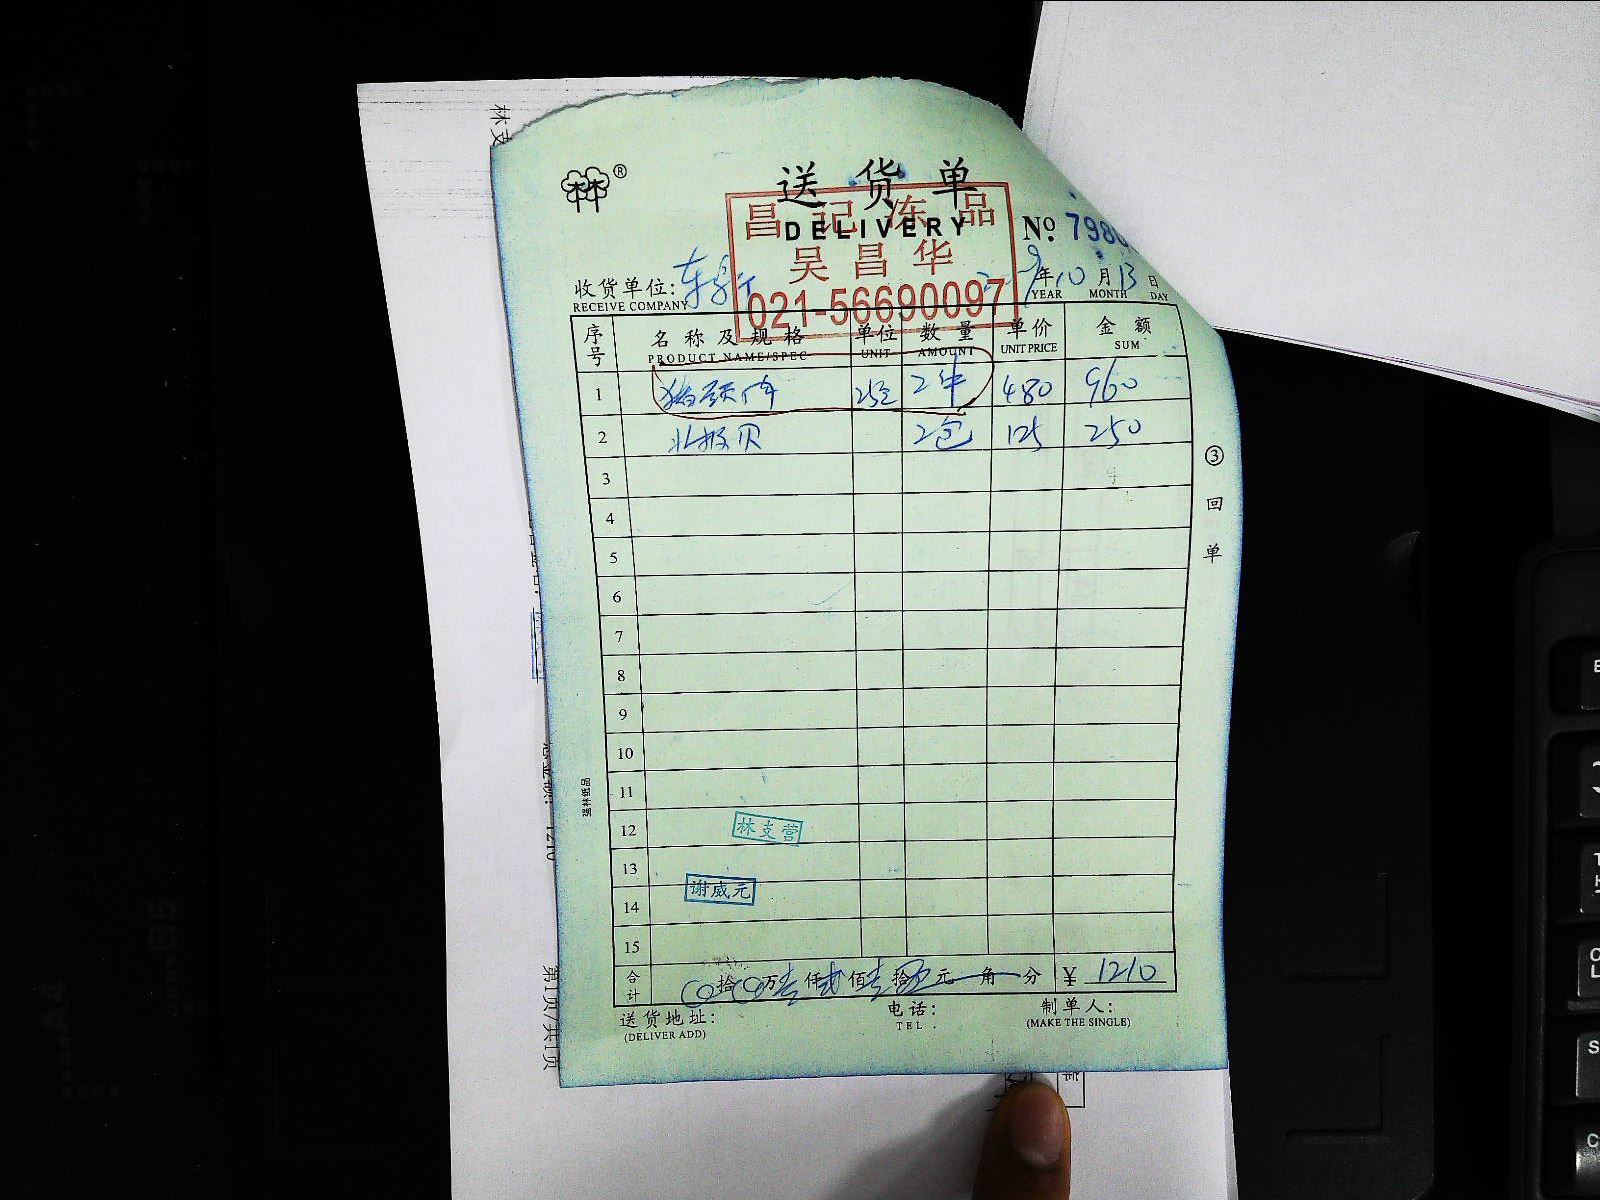 林 ®
送货单
DELIVERY
昌记冻品
吴昌华
021-56690097
№ 798
收货单位:
RECEIVE COMPANY
9年10月13日
YEAR MONTH DAY
序号 名称及规格 单位 数量 单价 金额
PRODUCT NAME/SPEC UNIT AMOUNT UNIT PRICE SUM
1 猪颈肉 25包 2件 480 960
2 北极贝 2包 125 250
3
4
5
6
7
8
9
10
11
12 林支营
13
14 谢威元
15
合计 拾 万壹仟贰佰壹拾 元 角 分 ¥ 1210
送货地址: 电话: 制单人:
(DELIVER ADD) TEL. (MAKE THE SINGLE)
③回单
强林纸品
林支
1210
第1页/共1页
A4
B5